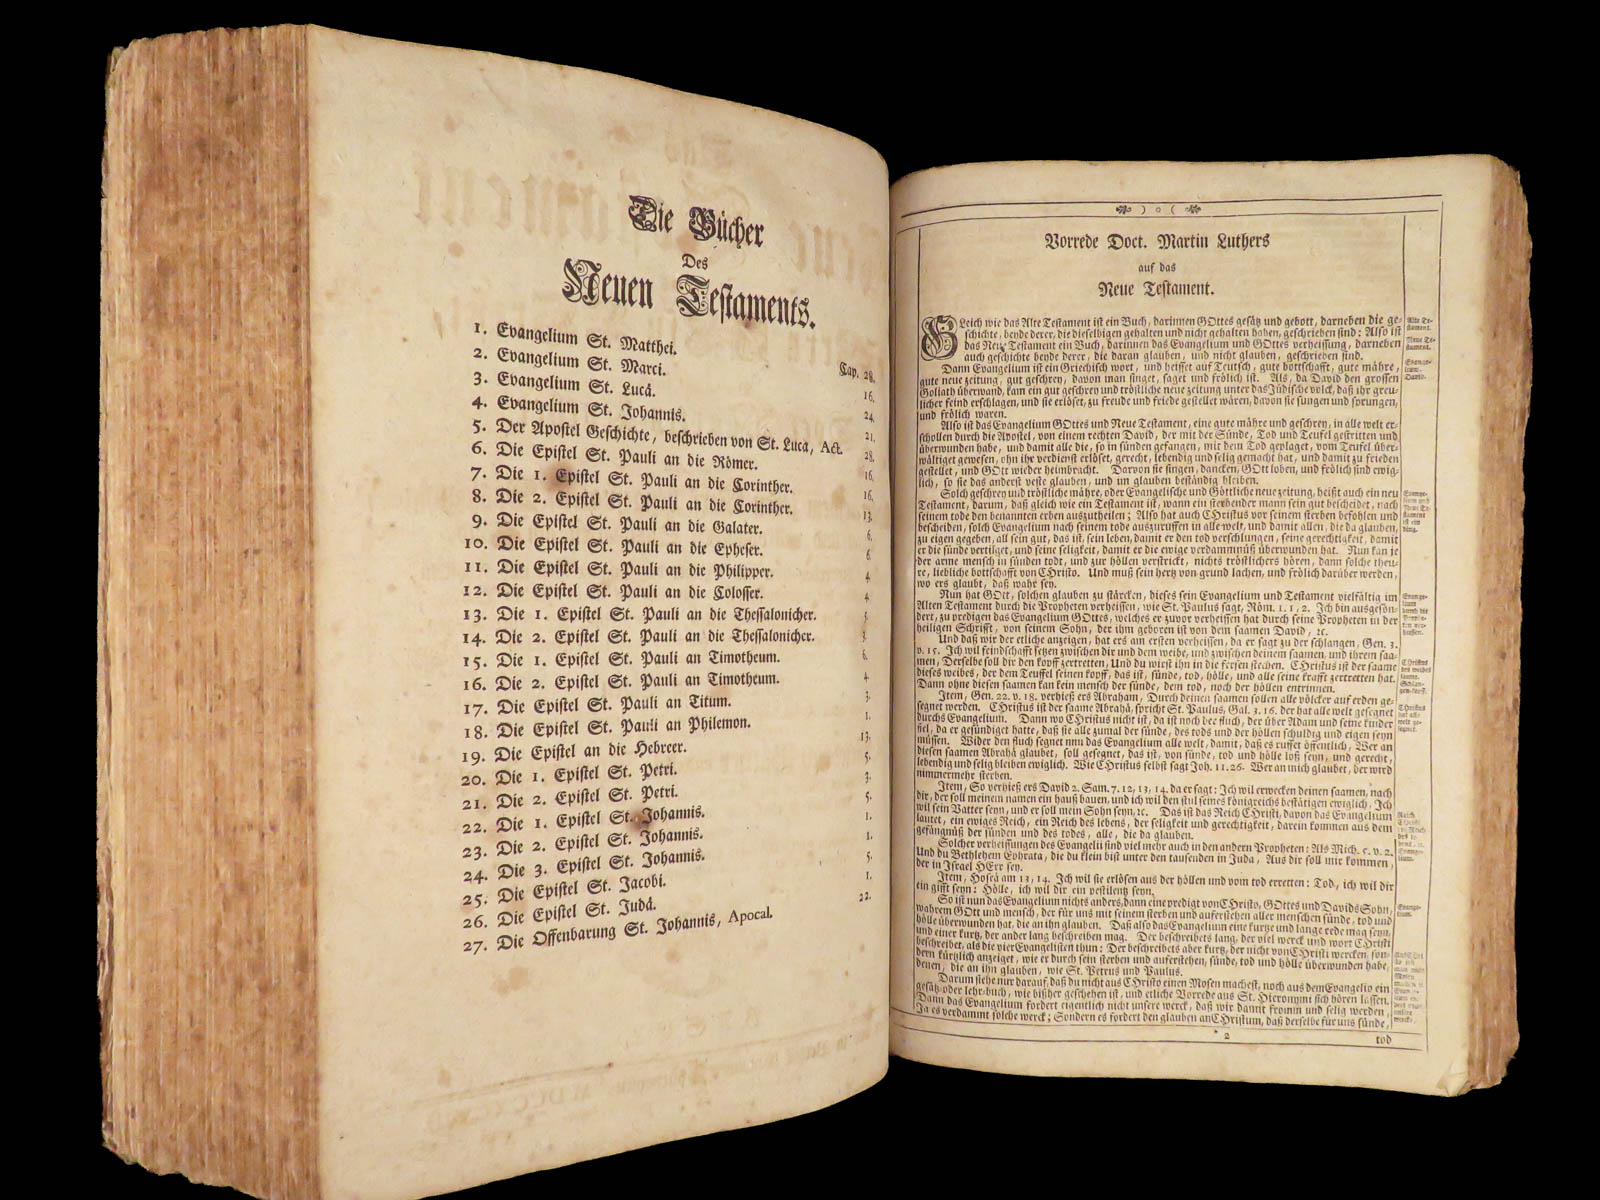 Die Bücher
Des
Neuen Testaments.
1. Evangelium St. Matthei. Cap. 28.
2. Evangelium St. Marci. 16.
3. Evangelium St. Lucä. 24.
4. Evangelium St. Johannis. 21.
5. Der Apostel Geschichte, beschrieben von St. Luca, Act. 28.
6. Die Epistel St. Pauli an die Römer. 16.
7. Die 1. Epistel St. Pauli an die Corinther. 16.
8. Die 2. Epistel St. Pauli an die Corinther. 13.
9. Die Epistel St. Pauli an die Galater. 6.
10. Die Epistel St. Pauli an die Epheser. 6.
11. Die Epistel St. Pauli an die Philipper. 4.
12. Die Epistel St. Pauli an die Colosser. 4.
13. Die 1. Epistel St. Pauli an die Thessalonicher. 5.
14. Die 2. Epistel St. Pauli an die Thessalonicher. 3.
15. Die 1. Epistel St. Pauli an Timotheum. 6.
16. Die 2. Epistel St. Pauli an Timotheum. 4.
17. Die Epistel St. Pauli an Titum. 3.
18. Die Epistel St. Pauli an Philemon. 1.
19. Die Epistel an die Hebreer. 13.
20. Die 1. Epistel St. Petri. 5.
21. Die 2. Epistel St. Petri. 3.
22. Die 1. Epistel St. Johannis. 5.
23. Die 2. Epistel St. Johannis. 1.
24. Die 3. Epistel St. Johannis. 1.
25. Die Epistel St. Jacobi. 5.
26. Die Epistel St. Judä. 1.
27. Die Offenbarung St. Johannis, Apocal. 22.
Vorrede Doct. Martin Luthers
auf das
Neue Testament.
GLeich wie das Alte Testament ist ein Buch, darinnen GOttes gesätz und gebott, darneben die ge-
schichte, beyde derer, die dieselbigen gehalten und nicht gehalten haben, geschrieben sind: Also ist
das Neue Testament ein Buch, darinnen das Evangelium und GOttes verheissung, darneben
auch geschichte beyde derer, die daran glauben, und nicht glauben, geschrieben sind.
Dann Evangelium ist ein Griechisch wort, und heisset auf Teutsch, gute bottschafft, gute mähre,
gute neue zeitung, gut geschrey, davon man singet, saget und frölich ist. Als, da David den grossen
Goliath überwand, kam ein gut geschrey und tröstliche neue zeitung unter das Jüdische volck, daß ihr greu-
licher feind erschlagen, und sie erlöset, zu freude und friede gestellet wären, davon sie sungen und sprungen,
und frölich waren.
Also ist das Evangelium GOttes und Neue Testament, eine gute mähre und geschrey, in alle welt er-
schollen durch die Apostel, von einem rechten David, der mit der Sünde, Tod und Teufel gestritten und
überwunden habe, und damit alle die, so in sünden gefangen, mit dem Tod geplaget, vom Teufel über-
wältiget gewesen, ohn ihr verdienst erlöset, gerecht, lebendig und selig gemacht hat, und damit zu frieden
gestellet, und GOtt wieder heimbracht. Darvon sie singen, dancken, GOtt loben, und frölich sind ewig-
lich, so sie das anderst veste glauben, und im glauben beständig bleiben.
Solch geschrey und tröstliche mähre, oder Evangelische und Göttliche neue zeitung, heißt auch ein neu
Testament, darum, daß gleich wie ein Testament ist, wann ein sterbender mann sein gut bescheidet, nach
seinem tode den benannten erben auszutheilen; Also hat auch CHristus vor seinem sterben befohlen und
bescheiden, solch Evangelium nach seinem tode auszuruffen in alle welt, und damit allen, die da glauben,
zu eigen gegeben, all sein gut, das ist, sein leben, damit er den tod verschlungen, seine gerechtigkeit, damit
er die sünde vertilget, und seine seligkeit, damit er die ewige verdammnüß überwunden hat. Nun kan je
der arme mensch in sünden todt, und zur höllen verstrickt, nichts tröstlichers hören, dann solche theu-
re, liebliche bottschafft von CHristo. Und muß sein hertz von grund lachen, und frölich darüber werden,
wo ers glaubt, daß wahr sey.
Nun hat GOtt, solchen glauben zu stärcken, dieses sein Evangelium und Testament vielfältig im
Alten Testament durch die Propheten verheissen, wie St. Paulus sagt, Röm. 1. 1, 2. Ich bin ausgeson-
dert, zu predigen das Evangelium GOttes, welches er zuvor verheissen hat durch seine Propheten in der
heiligen Schrifft, von seinem Sohn, der ihm geboren ist von dem saamen David, ꝛc.
Und daß wir der etliche anzeigen, hat ers am ersten verheissen, da er sagt zu der schlangen, Gen. 3.
v. 15. Ich wil feindschafft setzen zwischen dir und dem weibe, und zwischen deinem saamen, und ihrem saa-
men, Derselbe soll dir den kopff zertretten, Und du wirst ihn in die fersen stechen. CHristus ist der saame
dieses weibes, der dem Teuffel seinen kopff, das ist, sünde, tod, hölle, und alle seine krafft zertretten hat.
Dann ohne diesen saamen kan kein mensch der sünde, dem tod, noch der höllen entrinnen.
Item, Gen. 22. v. 18. verhieß ers Abraham, Durch deinen saamen sollen alle völcker auf erden ge-
segnet werden. CHristus ist der saame Abrahä, spricht St. Paulus, Gal. 3. 16. der hat alle welt gesegnet
durchs Evangelium. Dann wo CHristus nicht ist, da ist noch der fluch, der über Adam und seine kinder
fiel, da er gesündiget hatte, daß sie alle zumal der sünde, des tods und der höllen schuldig und eigen seyn
müssen. Wider den fluch segnet nun das Evangelium alle welt, damit, daß es ruffet öffentlich, Wer an
diesen saamen Abrahä glaubet, soll gesegnet, das ist, von sünde, tod und hölle loß seyn, und gerecht,
lebendig und selig bleiben ewiglich. Wie CHristus selbst sagt Joh. 11. 26. Wer an mich glaubet, der wird
nimmermehr sterben.
Item, So verhieß ers David 2. Sam. 7. 12, 13, 14. da er sagt: Ich wil erwecken deinen saamen, nach
dir, der soll meinem namen ein hauß bauen, und ich wil den stul seines königreichs bestätigen ewiglich. Ich
wil sein Vatter seyn, und er soll mein Sohn seyn, ꝛc. Das ist das Reich CHristi, davon das Evangelium
lautet, ein ewiges Reich, ein Reich des lebens, der seligkeit und gerechtigkeit, darein kommen aus dem
gefängnüß der sünden und des todes, alle, die da glauben.
Solcher verheissungen des Evangelii sind viel mehr auch in den andern Propheten: Als Mich. 5. v. 2.
Und du Bethlehem Ephrata, die du klein bist unter den tausenden in Juda, Aus dir soll mir kommen,
der in Israel HErr sey.
Item, Hoseä am 13, 14. Ich wil sie erlösen aus der höllen und vom tod erretten: Tod, ich wil dir
ein gifft seyn: Hölle, ich wil dir ein pestilentz seyn.
So ist nun das Evangelium nichts anders, dann eine predigt von CHristo, GOttes und Davids Sohn,
wahrem GOtt und mensch, der für uns mit seinem sterben und auferstehen aller menschen sünde, tod und
hölle überwunden hat, die an ihn glauben. Daß also das Evangelium eine kurtze und lange rede mag seyn,
und einer kurtz, der ander lang beschreiben mag. Der beschreibets lang, der viel werck und wort CHristi
beschreibet, als die vier Evangelisten thun: Der beschreibets aber kurtz, der nicht von CHristi wercken, son-
dern kürtzlich anzeiget, wie er durch sein sterben und auferstehen, sünde, tod und hölle überwunden habe,
denen, die an ihn glauben, wie St. Petrus und Paulus.
Darum siehe nur darauf, daß du nicht aus CHristo einen Mosen machest, noch aus dem Evangelio ein
gesätz- oder lehr-buch, wie bißher geschehen ist, und etliche Vorrede aus St. Hieronymi sich hören lassen.
Dann das Evangelium fordert eigentlich nicht unsere werck, daß wir damit fromm und selig werden,
Ja es verdammt solche werck; Sondern es fordert den glauben an CHristum, daß derselbe für uns sünde,
2
tod
Alte Te-
stament.
Neue Te-
stament.
Evange-
lium.
David.